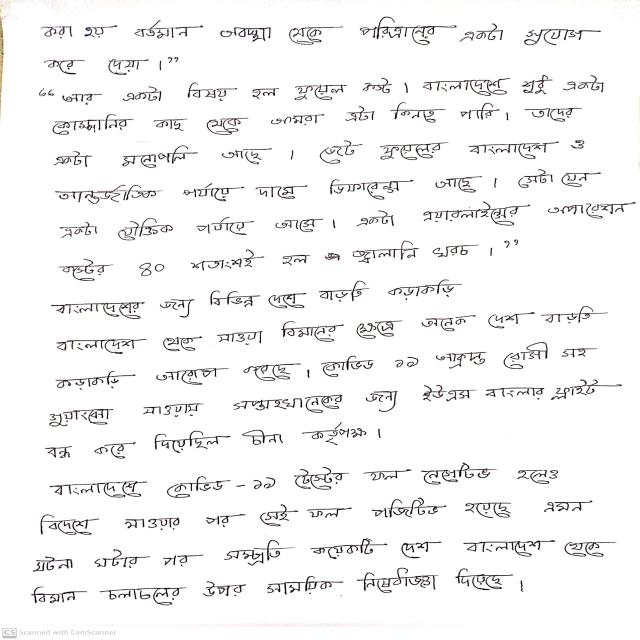 করা হয় বর্তমান অবস্থা থেকে পরিত্রানের একটা সুযোগ
করে দেয়া।”
“আর একটা বিষয় হল ফুয়েল কস্ট। বাংলাদেশে শুধু একটা
কোম্পানির কাছ থেকে আমরা এটা কিনতে পারি। তাদের
একটা মনোপলি আছে। জেট ফুয়েলের বাংলাদেশ ও
আন্তর্জাতিক পর্যায়ে দামে ডিফারেন্স আছে। সেটা যেন
একটা যৌক্তিক পর্যায়ে আসে। একটা এয়ারলাইন্সের অপারেশন
কস্টের 40 শতাংশই হল জ্বালানি খরচ।”
বাংলাদেশের জন্য বিভিন্ন দেশে বাড়তি কড়াকড়ি
বাংলাদেশ থেকে যাওয়া বিমানের ক্ষেত্রে অনেক দেশ বাড়তি
কড়াকড়ি আরোপ করেছে। কোভিড ১৯ আক্রান্ত রোগী সহ
গুয়াংজো যাওয়ায় সপ্তাহখানেকের জন্য ইউএস বাংলার ফ্লাইট
বন্ধ করে দিয়েছিল চীনা কর্তৃপক্ষ।
বাংলাদেশে কোভিড - ১৯ টেস্টের ফল নেগেটিভ হলেও
বিদেশে যাওয়ার পর সেই ফল পজিটিভ হয়েছে এমন
ঘটনা ঘটার পর সম্প্রতি কয়েকটি দেশ বাংলাদেশ থেকে
বিমান চলাচলের উপর সাময়িক নিষেধাজ্ঞা দিয়েছে।
CS Scanned with CamScanner